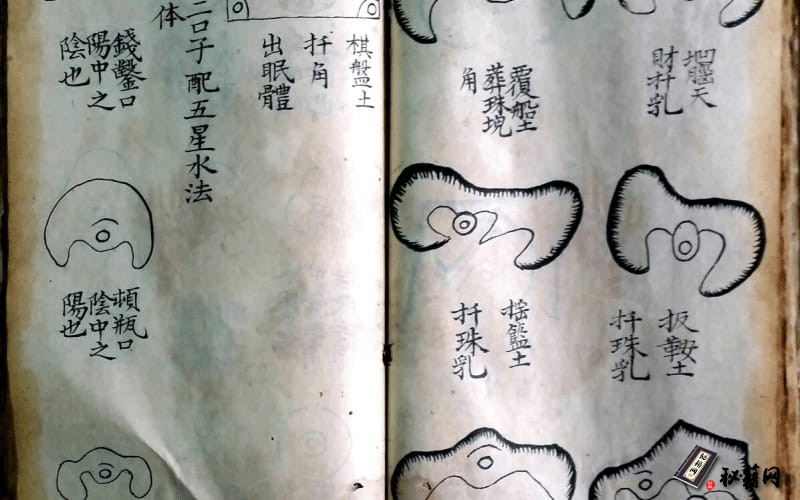 覆船土
葬珠
角
扳鞍土
扦珠乳
搖籃土
扦珠乳
棋盤土
扦角
出眠體
二口子配五星水法
体
錢鏊口
陽中之
陰也
瓶口
陰中之
陽也
秘籍网